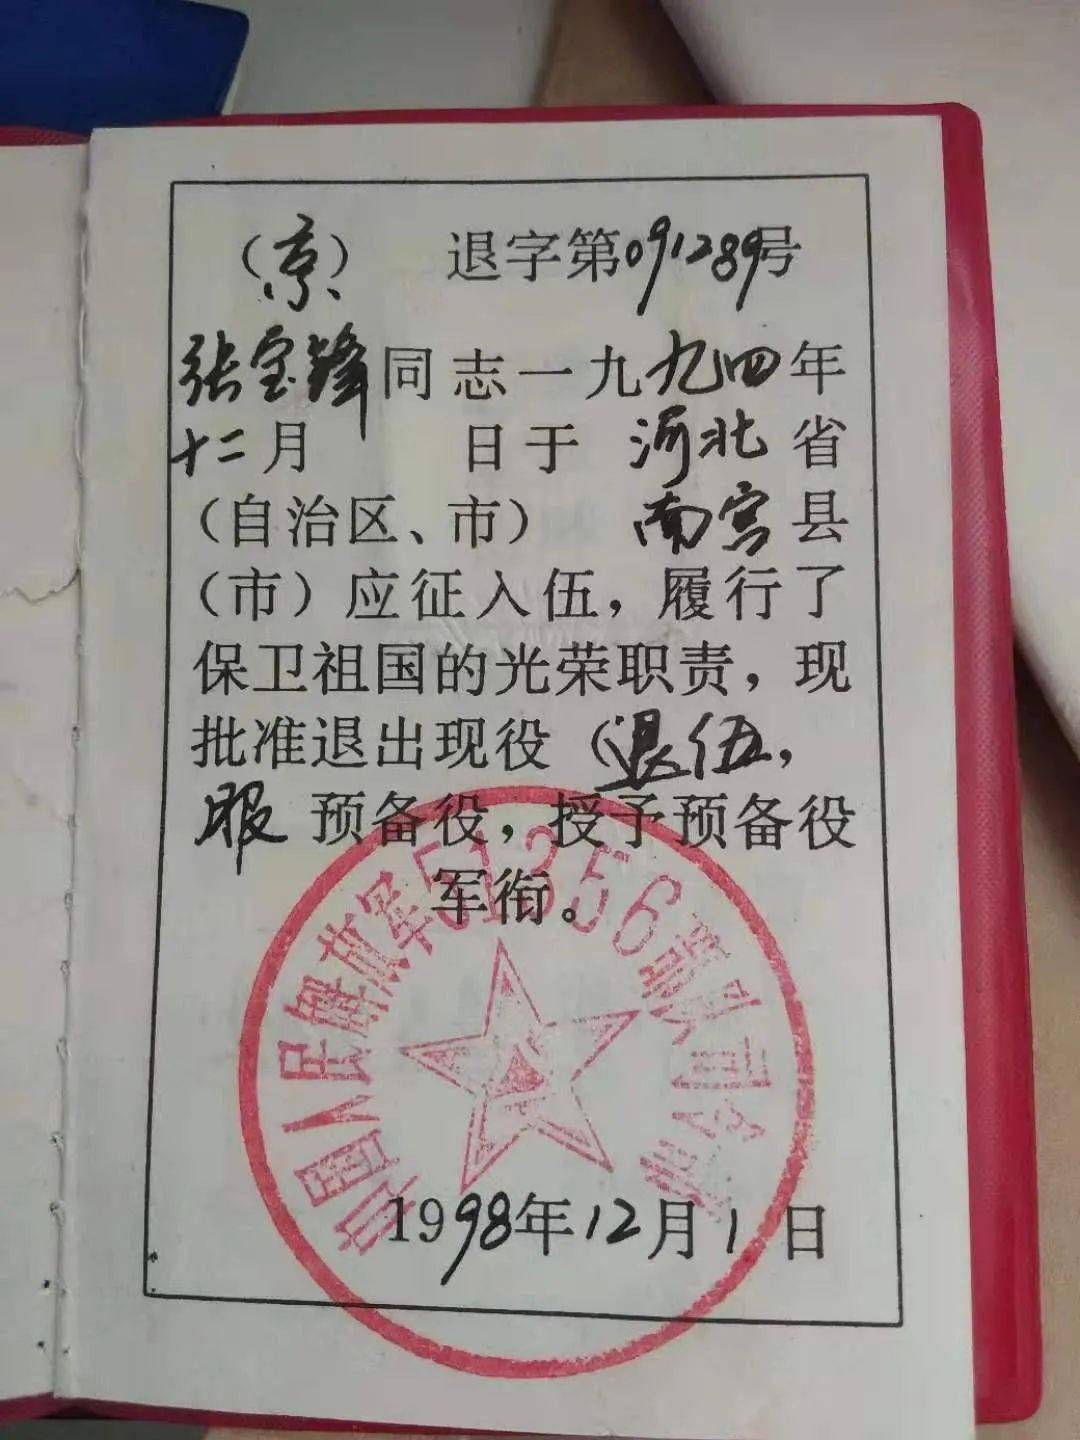 （京） 退字第091289号
张宝锋同志一九九四年
十二月 日于 河北 省
（自治区、市） 南宫县
（市）应征入伍，履行了
保卫祖国的光荣职责，现
批准退出现役（退伍，
服 预备役，授予预备役
军衔。
中国人民解放军51356部队司令部
1998年12月1日